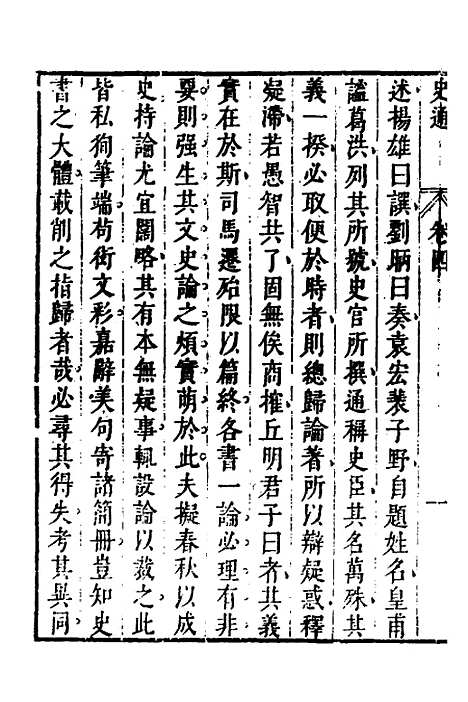 史通
卷四
一
述揚雄曰譔劉昞曰奏袁宏裴子野自題姓名皇甫
謐葛洪列其所號史官所撰通稱史臣其名萬殊其
義一揆必取便於時者則總歸論著所以辯疑惑釋
疑滯若愚智共了固無俟商搉丘明君子曰者其義
實在於斯司馬遷殆限以篇終各書一論必理有非
要則强生其文史論之煩實萌於此夫擬春秋以成
史持論尤宜闊略其有本無疑事輒設論以裁之此
皆私徇筆端苟衒文彩嘉辭美句寄諸簡册豈知史
書之大體載削之指歸者哉必尋其得失考其異同